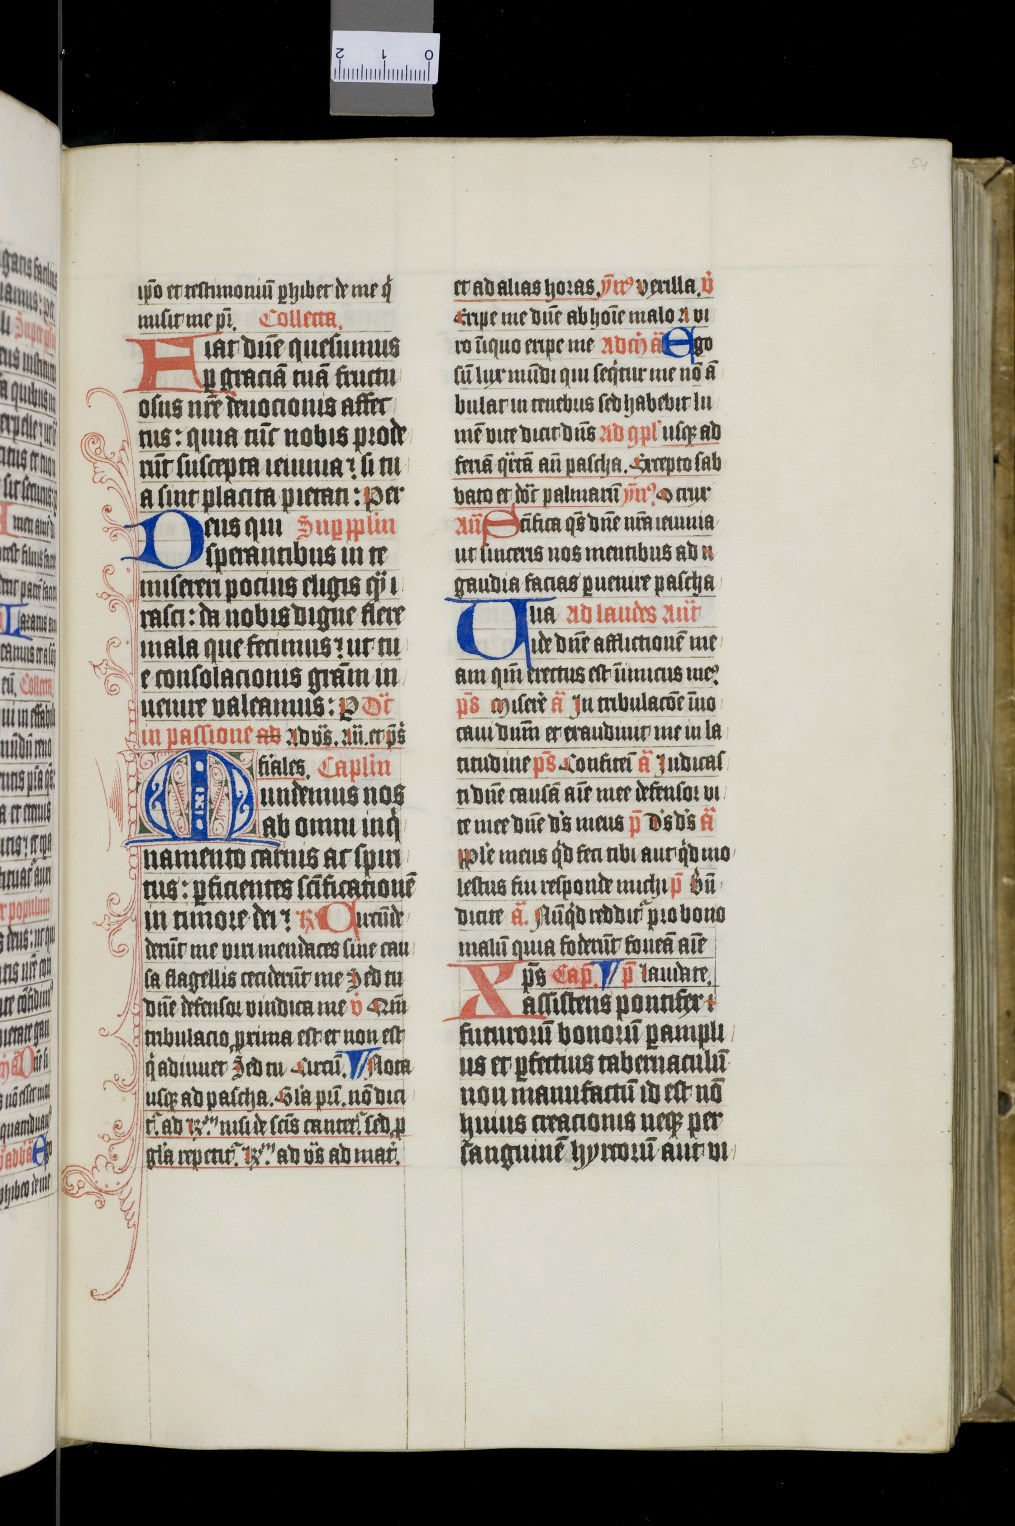 ip̄o et testimoniū ꝑhibet de me q̇
misit me pr̄. Collecta.
Fiat dn̄e quesumus
ꝑ graciā tuā fructu
osus nr̄e deuocionis affec
tus: quia tūc nobis prode
rūt suscepta ieiunia ⁊ si tu
a sint placita pietati: Per
Deus qui Sup pplm
sperantibus in te
misereri pocius eligis q̄ i
rasci: da nobis digne flere
mala que fecimus ⁊ ut tu
e consolacionis gr̄am in
uenire valeamus: P Dc̄
in passione ad Ad vs̄. an̄. et ps̄
fr̄iales. Caplm
Mundemus nos
ab omni inq̇
namento carnis ac spiri
tus: ꝑficientes sc̄ificationē
in timore dei ⁊ R Circūde
derūt me viri mendaces sine cau
sa flagellis ceciderūt me Sed tu
dn̄e defensor vindica me v̇ Qm̄
tribulacio proxima est et non est
q̇ adiuuet Sed tu Circū. V Nota
usqꝫ ad pascha. Gl'a pr̄i. nō dici
tr̄. ad R̄. nisi de sc̄is cantet̄. sed ꝓ
gl'a repetit̄. R̄. ad vs̄ ad mat̄.
et ad alias horas. ym̄ Vexilla. v̇
Eripe me dn̄e ab hoīe malo A vi
ro īiquo eripe me Ad m̄ ā Ego
sū lux mūdi qui seq̇tur me nō ā
bulat in tenebris sed habebit lu
mē vite dicit dn̄s Ad 9pl' usqꝫ ad
feriā q̇rtā an̄ pascha. Excepto sab
bato et do̅c̅ palmarū ym̄ O crux
An̄ Sc̄ifica q̄s dn̄e nr̄a ieiunia
ut sinceris nos mentibus ad
gaudia facias ꝑuenire pascha
lia Ad laudes Ant̄
Vide dn̄e afflictionē me
am qm̄ erectus est īimicus me9
ps̄ Miserē ā In tribulacōe īuo
caui dn̄m et exaudiuit me in la
titudine ps̄ Confitei ā Iudicas
ti dn̄e causā aīe mee defensor vi
te mee dn̄e ds̄ meus p̄ Ds̄ ds̄ ā
Pple meus q̇d feci tibi aut q̇d mo
lestus fui responde michi p̄ Bn̄
dicite ā. Nūq̇d reddit̄ pro bono
malū quia foderūt foueā aīe
ps̄ Cap̄. V p̄ laudate.
Xassistens pontifex
futurorū bonorū ꝑ ampli
us et ꝑfectius tabernaculū
non manufactū id est nō
huius creacionis neqꝫ per
sanguinē hyrcorū aut vi
54
2 1 0